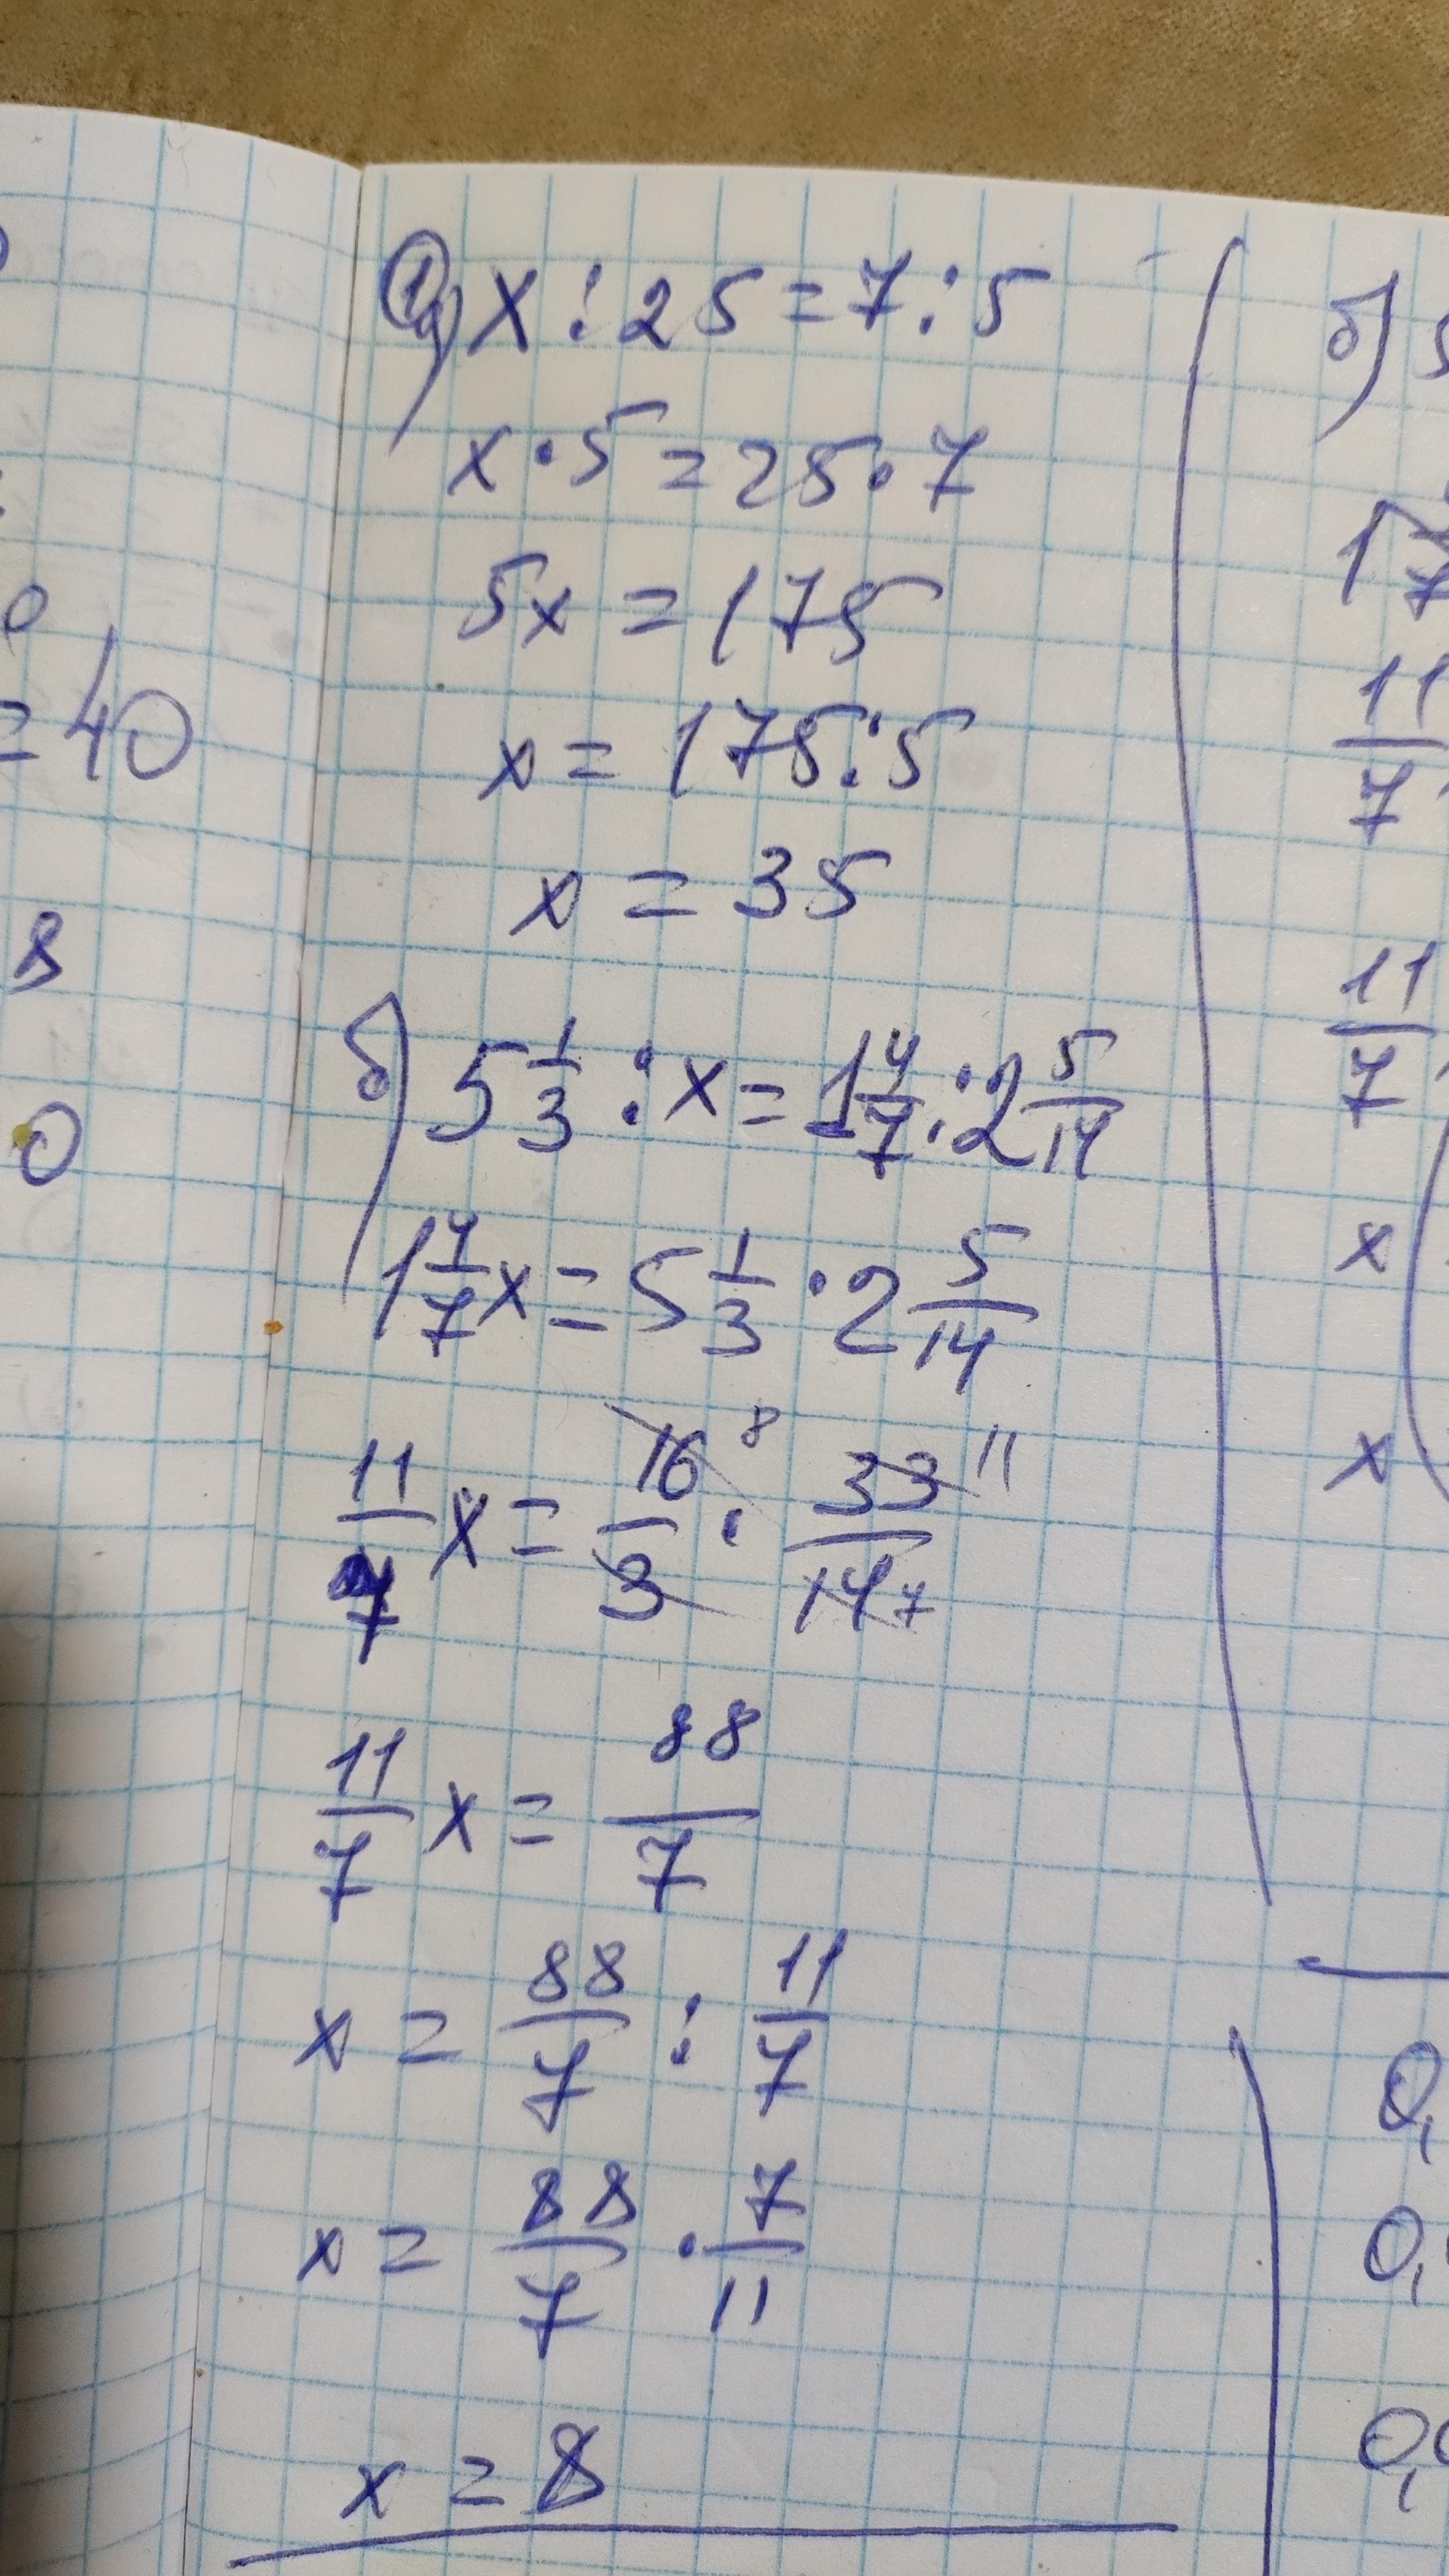 = 40
8
0
1 а) x : 25 = 7 : 5
x · 5 = 25 · 7
5x = 175
x = 175 : 5
x = 35
б) 5 1/3 : x = 1 4/7 : 2 5/14
1 4/7 x = 5 1/3 · 2 5/14
11/7 x = 16/3 8 · 33/14 11 7
11/7 x = 88/7
x = 88/7 : 11/7
x = 88/7 · 7/11
x = 8
б) 5
11/7
11/7
x
x
0,
0,
0,0